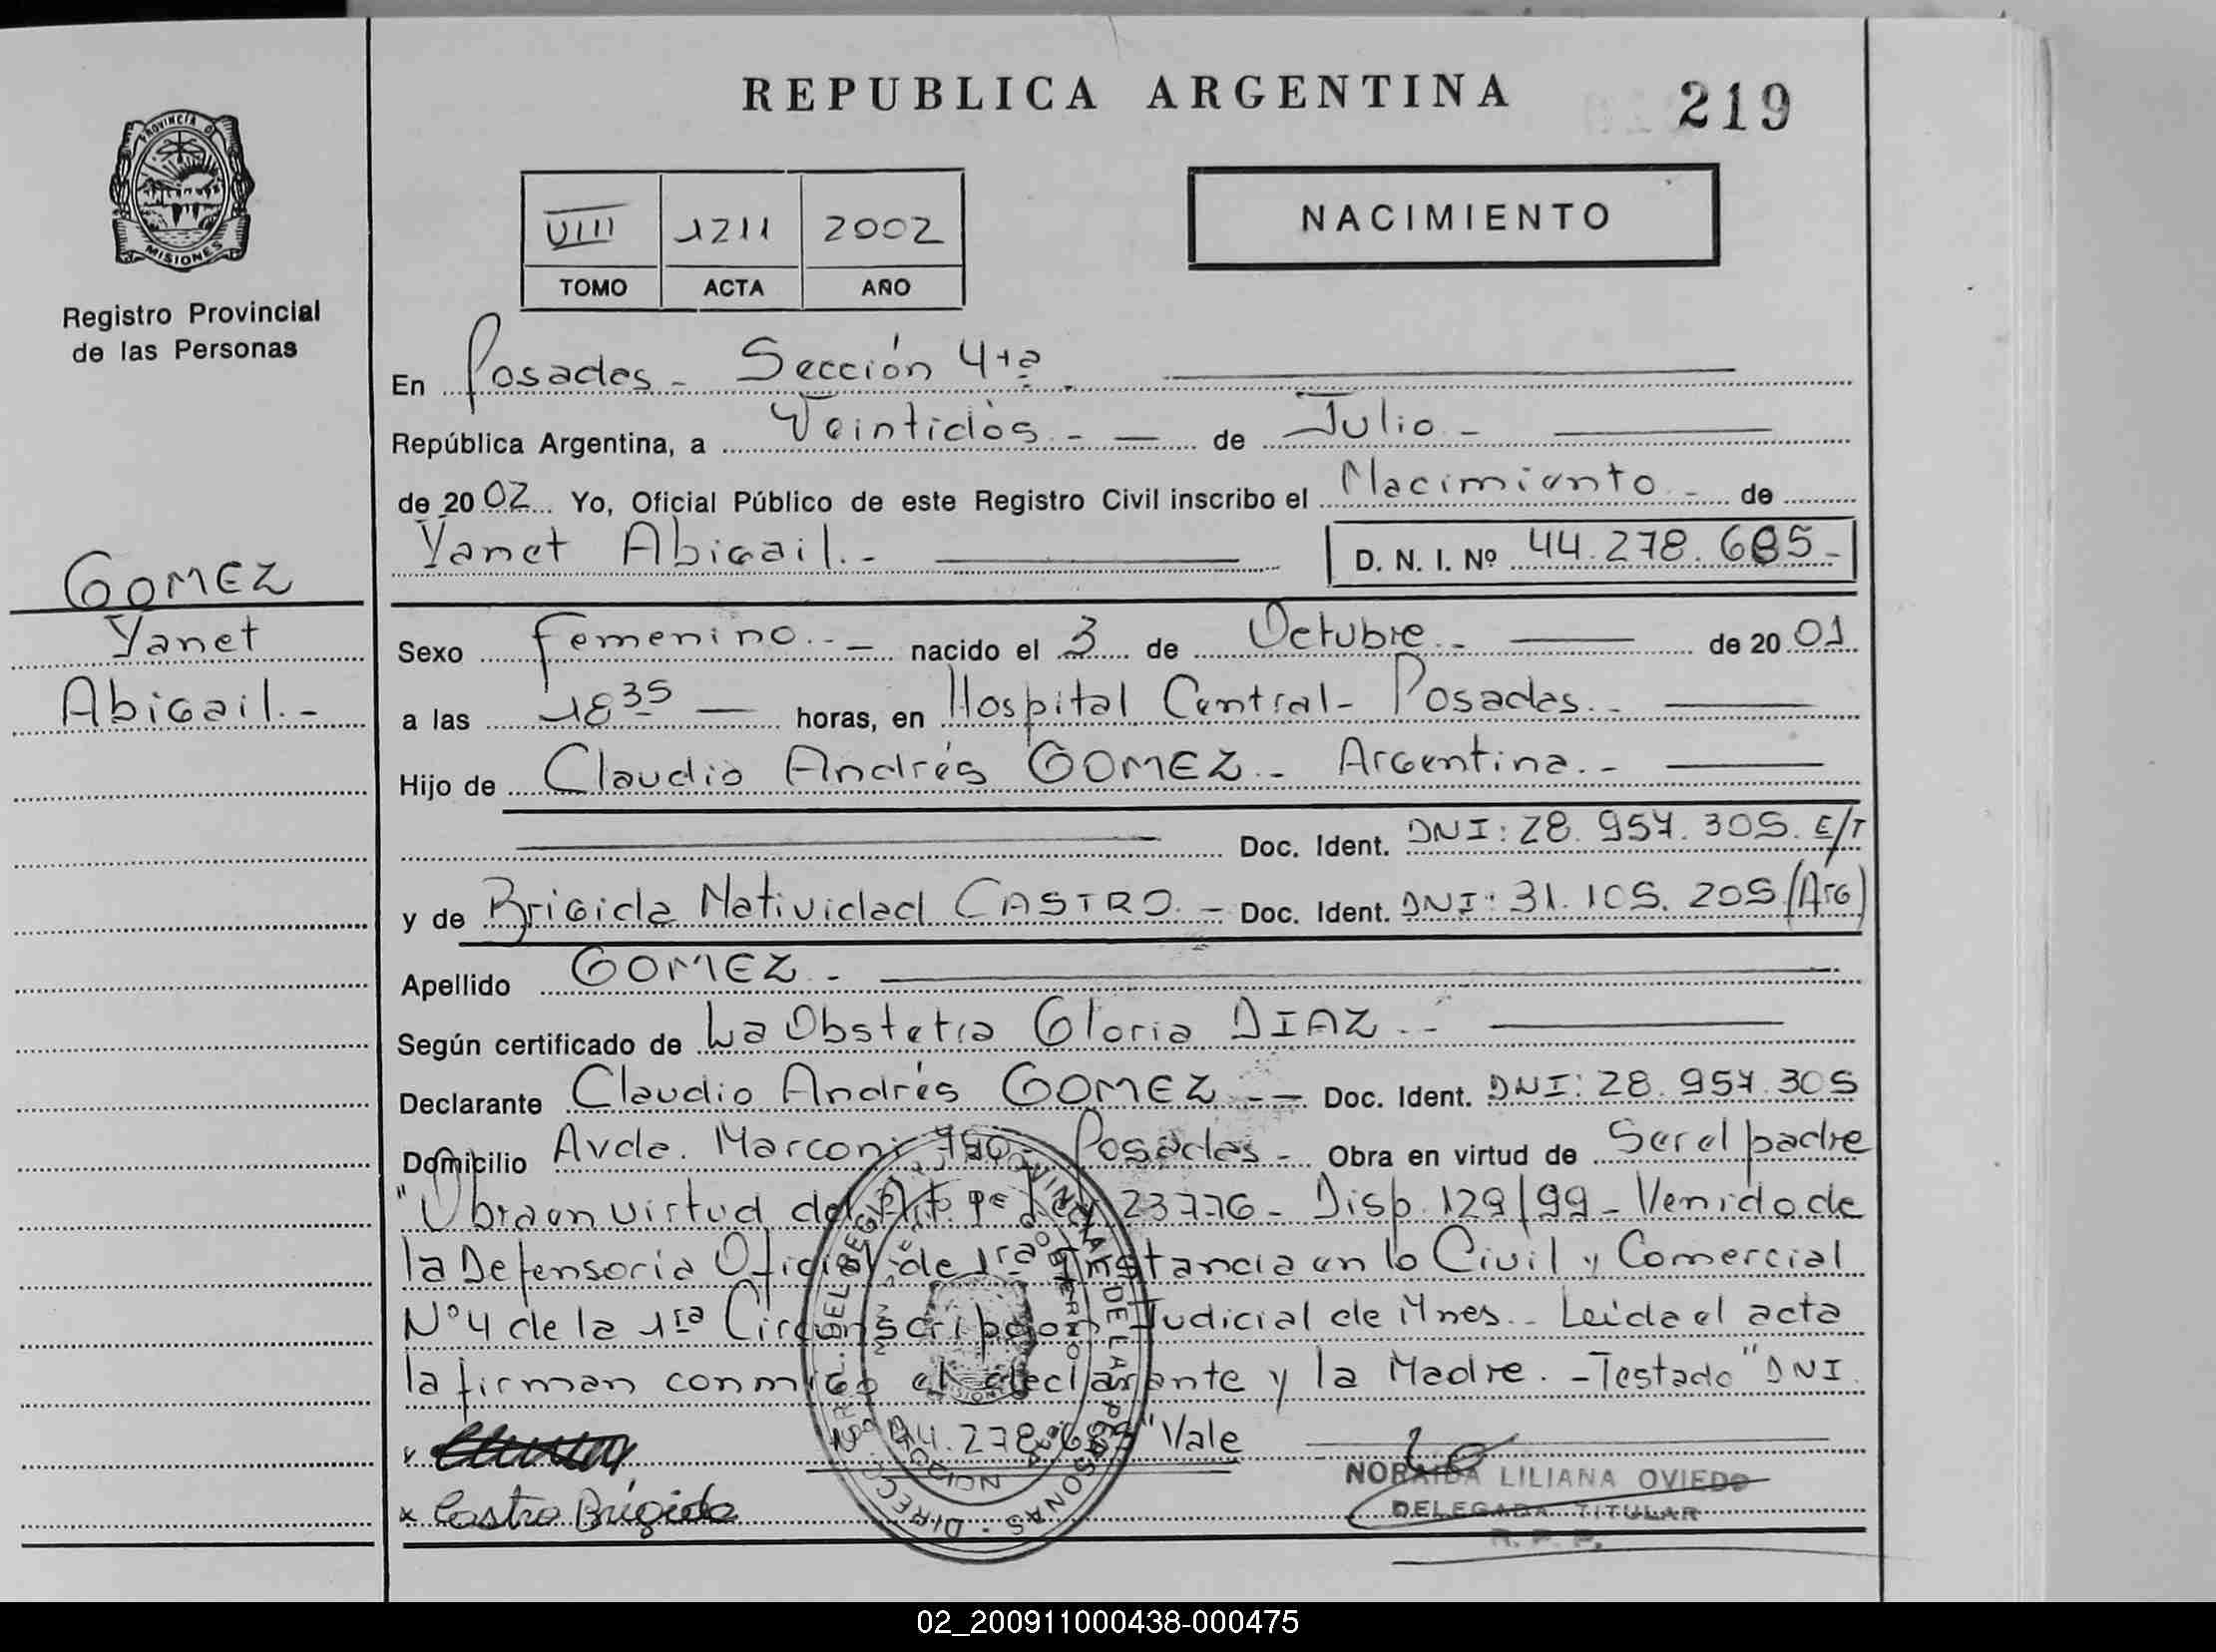 REPUBLICA ARGENTINA
219
PROVINCIA D
MISIONES
VIII 1211 2002
TOMO ACTA AÑO
NACIMIENTO
Registro Provincial
de las Personas
En Posadas - Sección 4ta.
República Argentina, a Veintidòs - — de Julio -
de 2002 Yo, Oficial Público de este Registro Civil inscribo el Nacimiento - de
Yanet Abigail.-
D. N. I. Nº 44.278.685-
GOMEZ
Yanet
Abigail.-
Sexo Femenino.- — nacido el 3 de Octubre.- de 2001
a las 18 35 — horas, en Hospital Central- Posadas.-
Hijo de Claudio Andrés GOMEZ.- Argentina.-
Doc. Ident. DNI: 28.957.305. E/T
y de Brigida Natividad CASTRO.- Doc. Ident. DNI: 31.105.205 (Arg)
Apellido GOMEZ.-
Según certificado de La Obstetra Gloria DIAZ.-
Declarante Claudio Andrés GOMEZ.- — Doc. Ident. DNI: 28.957.305
Domicilio Avda. Marconi Posadas - Obra en virtud de Ser el padre
"Obra en virtud del Art. 9º Ley 23776 - Disp. 129/99 - Venido de
la Defensoría Oficial de 1ra Instancia en lo Civil y Comercial
Nº 4 de la 1ra Circunscripcion Judicial de Mnes.- Leída el acta
la firman conmigo el declarante y la Madre. - Testado "DNI.
Nº 44.278. "Vale
x Castro Brígida
NORAIDA LILIANA OVIEDO
DELEGADA TITULAR
R. P. P.
02_200911000438-000475